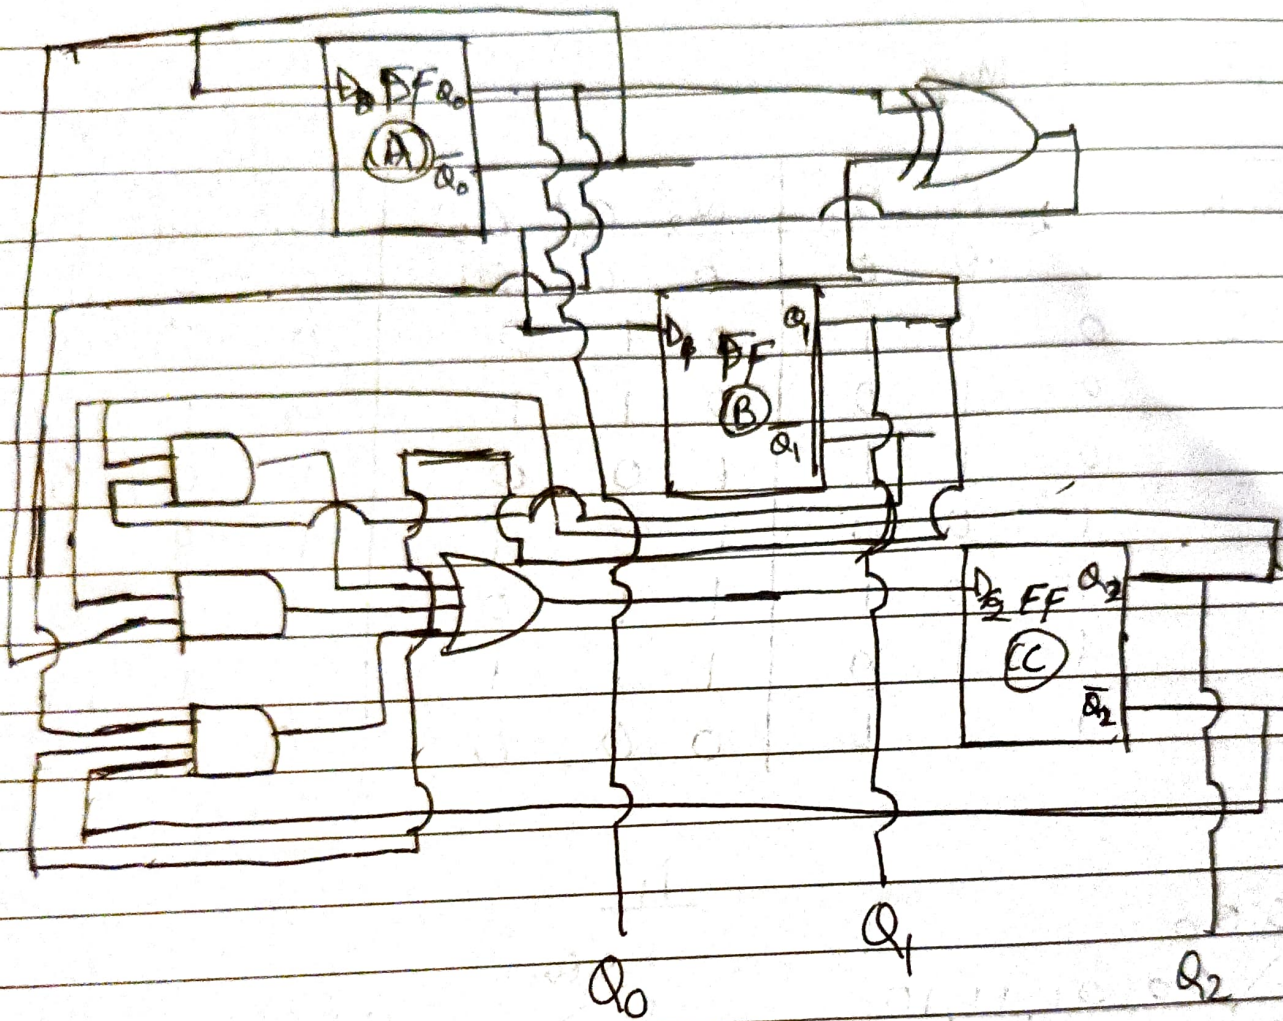 D₀ DF Q₀
(A) Q̅₀
D₁ DF Q₁
(B) Q̅₁
D₂ FF Q₂
(C) Q̅₂
Q₀ Q₁ Q₂